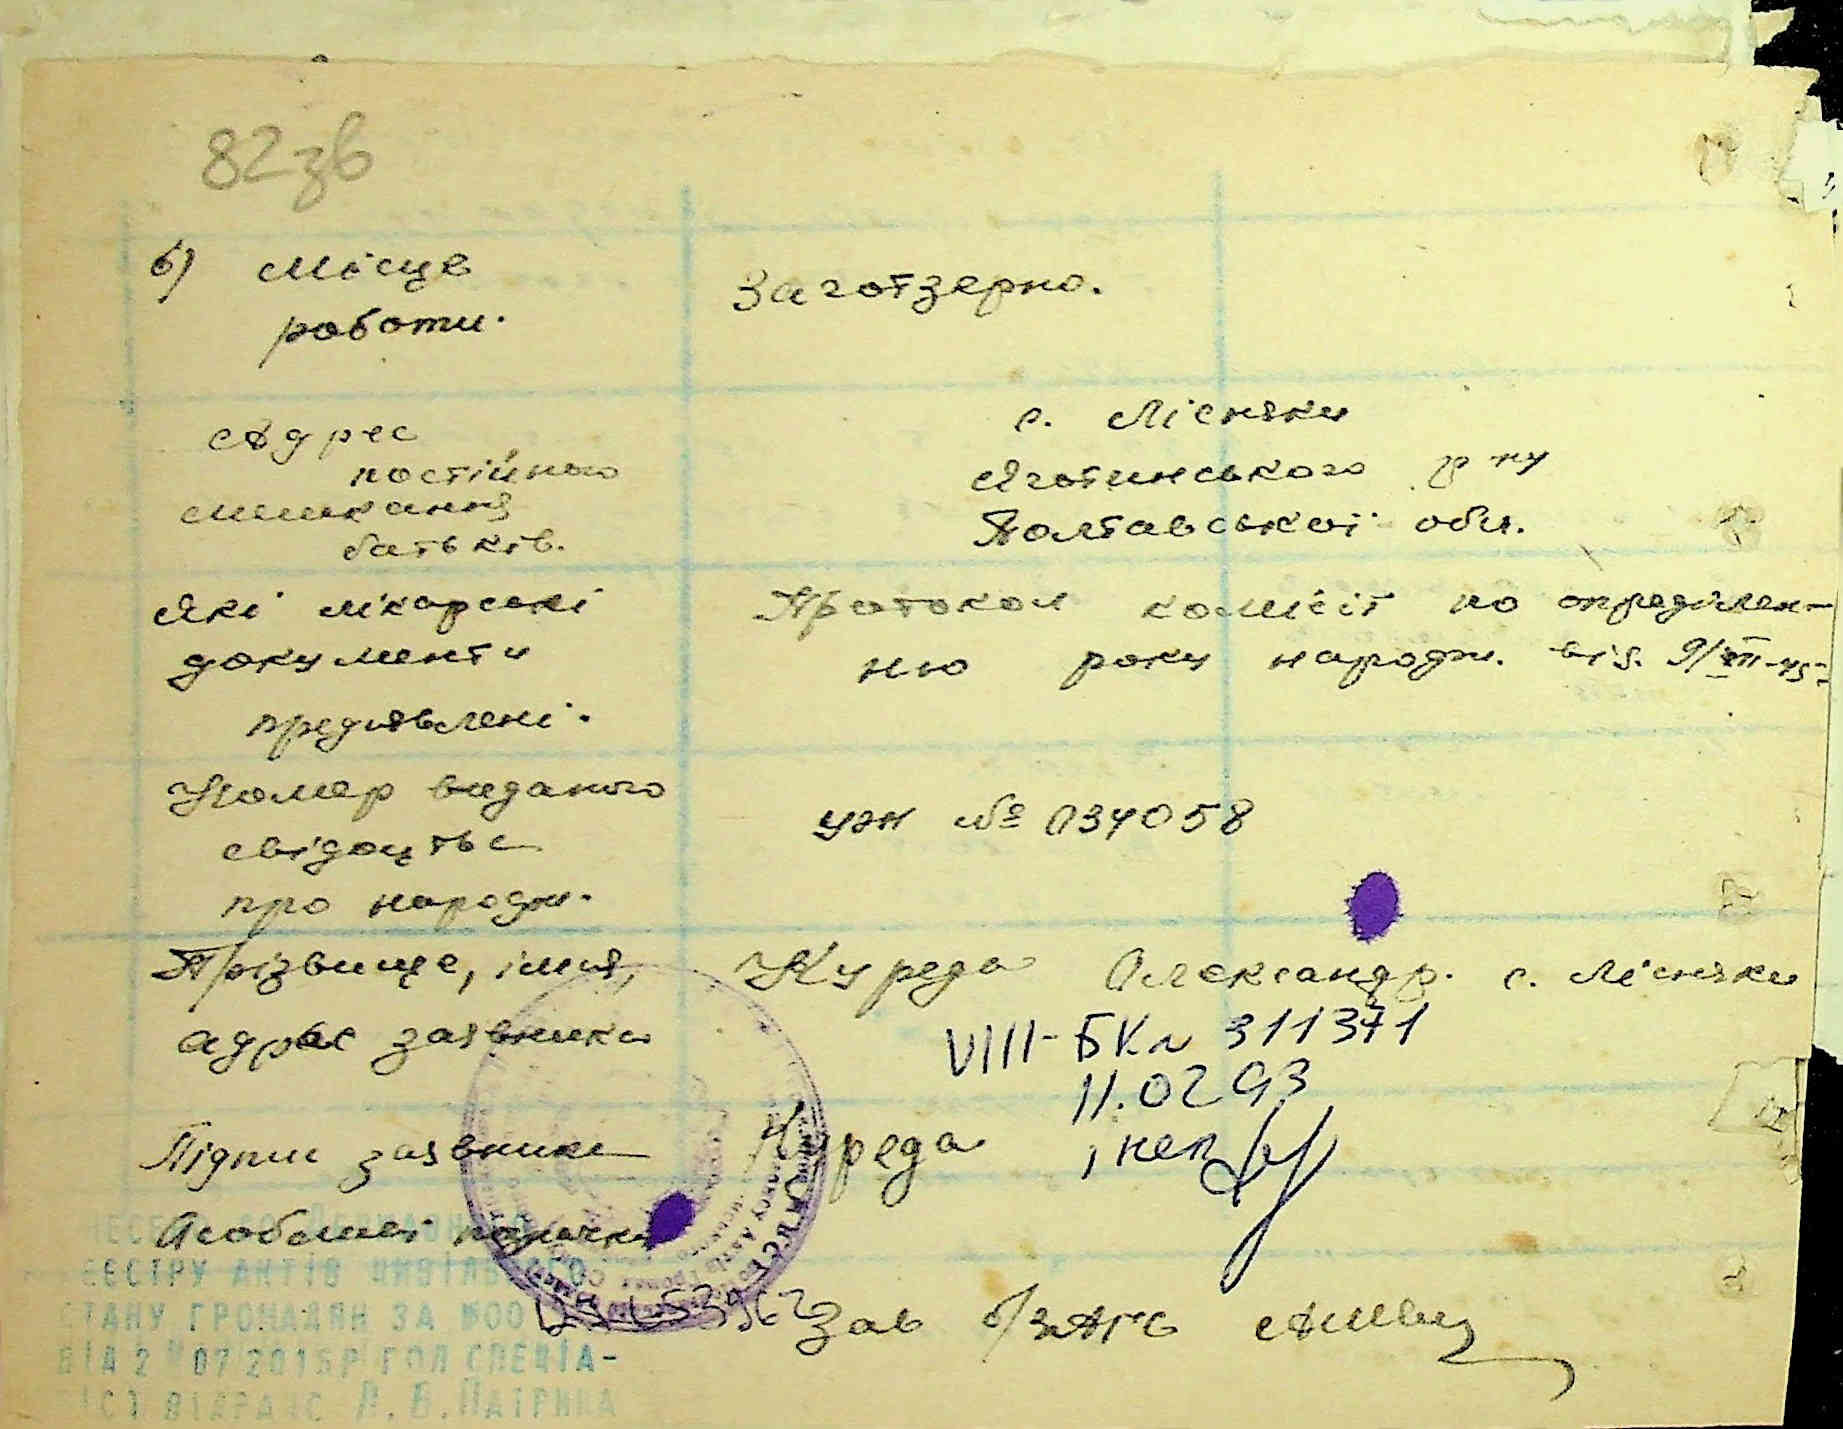 82зв
б) Місце
роботи.
Заготзерно.
Адрес
постійного
мешкання
батьків.
с. Лісняки
Яготинського р-ну
Полтавської обл.
Які лікарські
документи
предявлені.
Протокол комісії по определен-
ню року народж. від. 9/VII-45
Номер виданого
свідоцтва
про народж.
УЖ № 034058
Прізвище, імя,
адрес заявника
Куреда Александр. с. Лісняки
VIII-БК № 311371
11.02 93
Підпис заявника
Куреда
Особливі помітки
РЕЄСТРУ АКТІВ ЦИВІЛЬНОГО
СТАНУ ГРОМАДЯН ЗА №00
ВІД 2 07 2015Р ГОЛ СПЕЦІА-
Зав б/ЗАГС